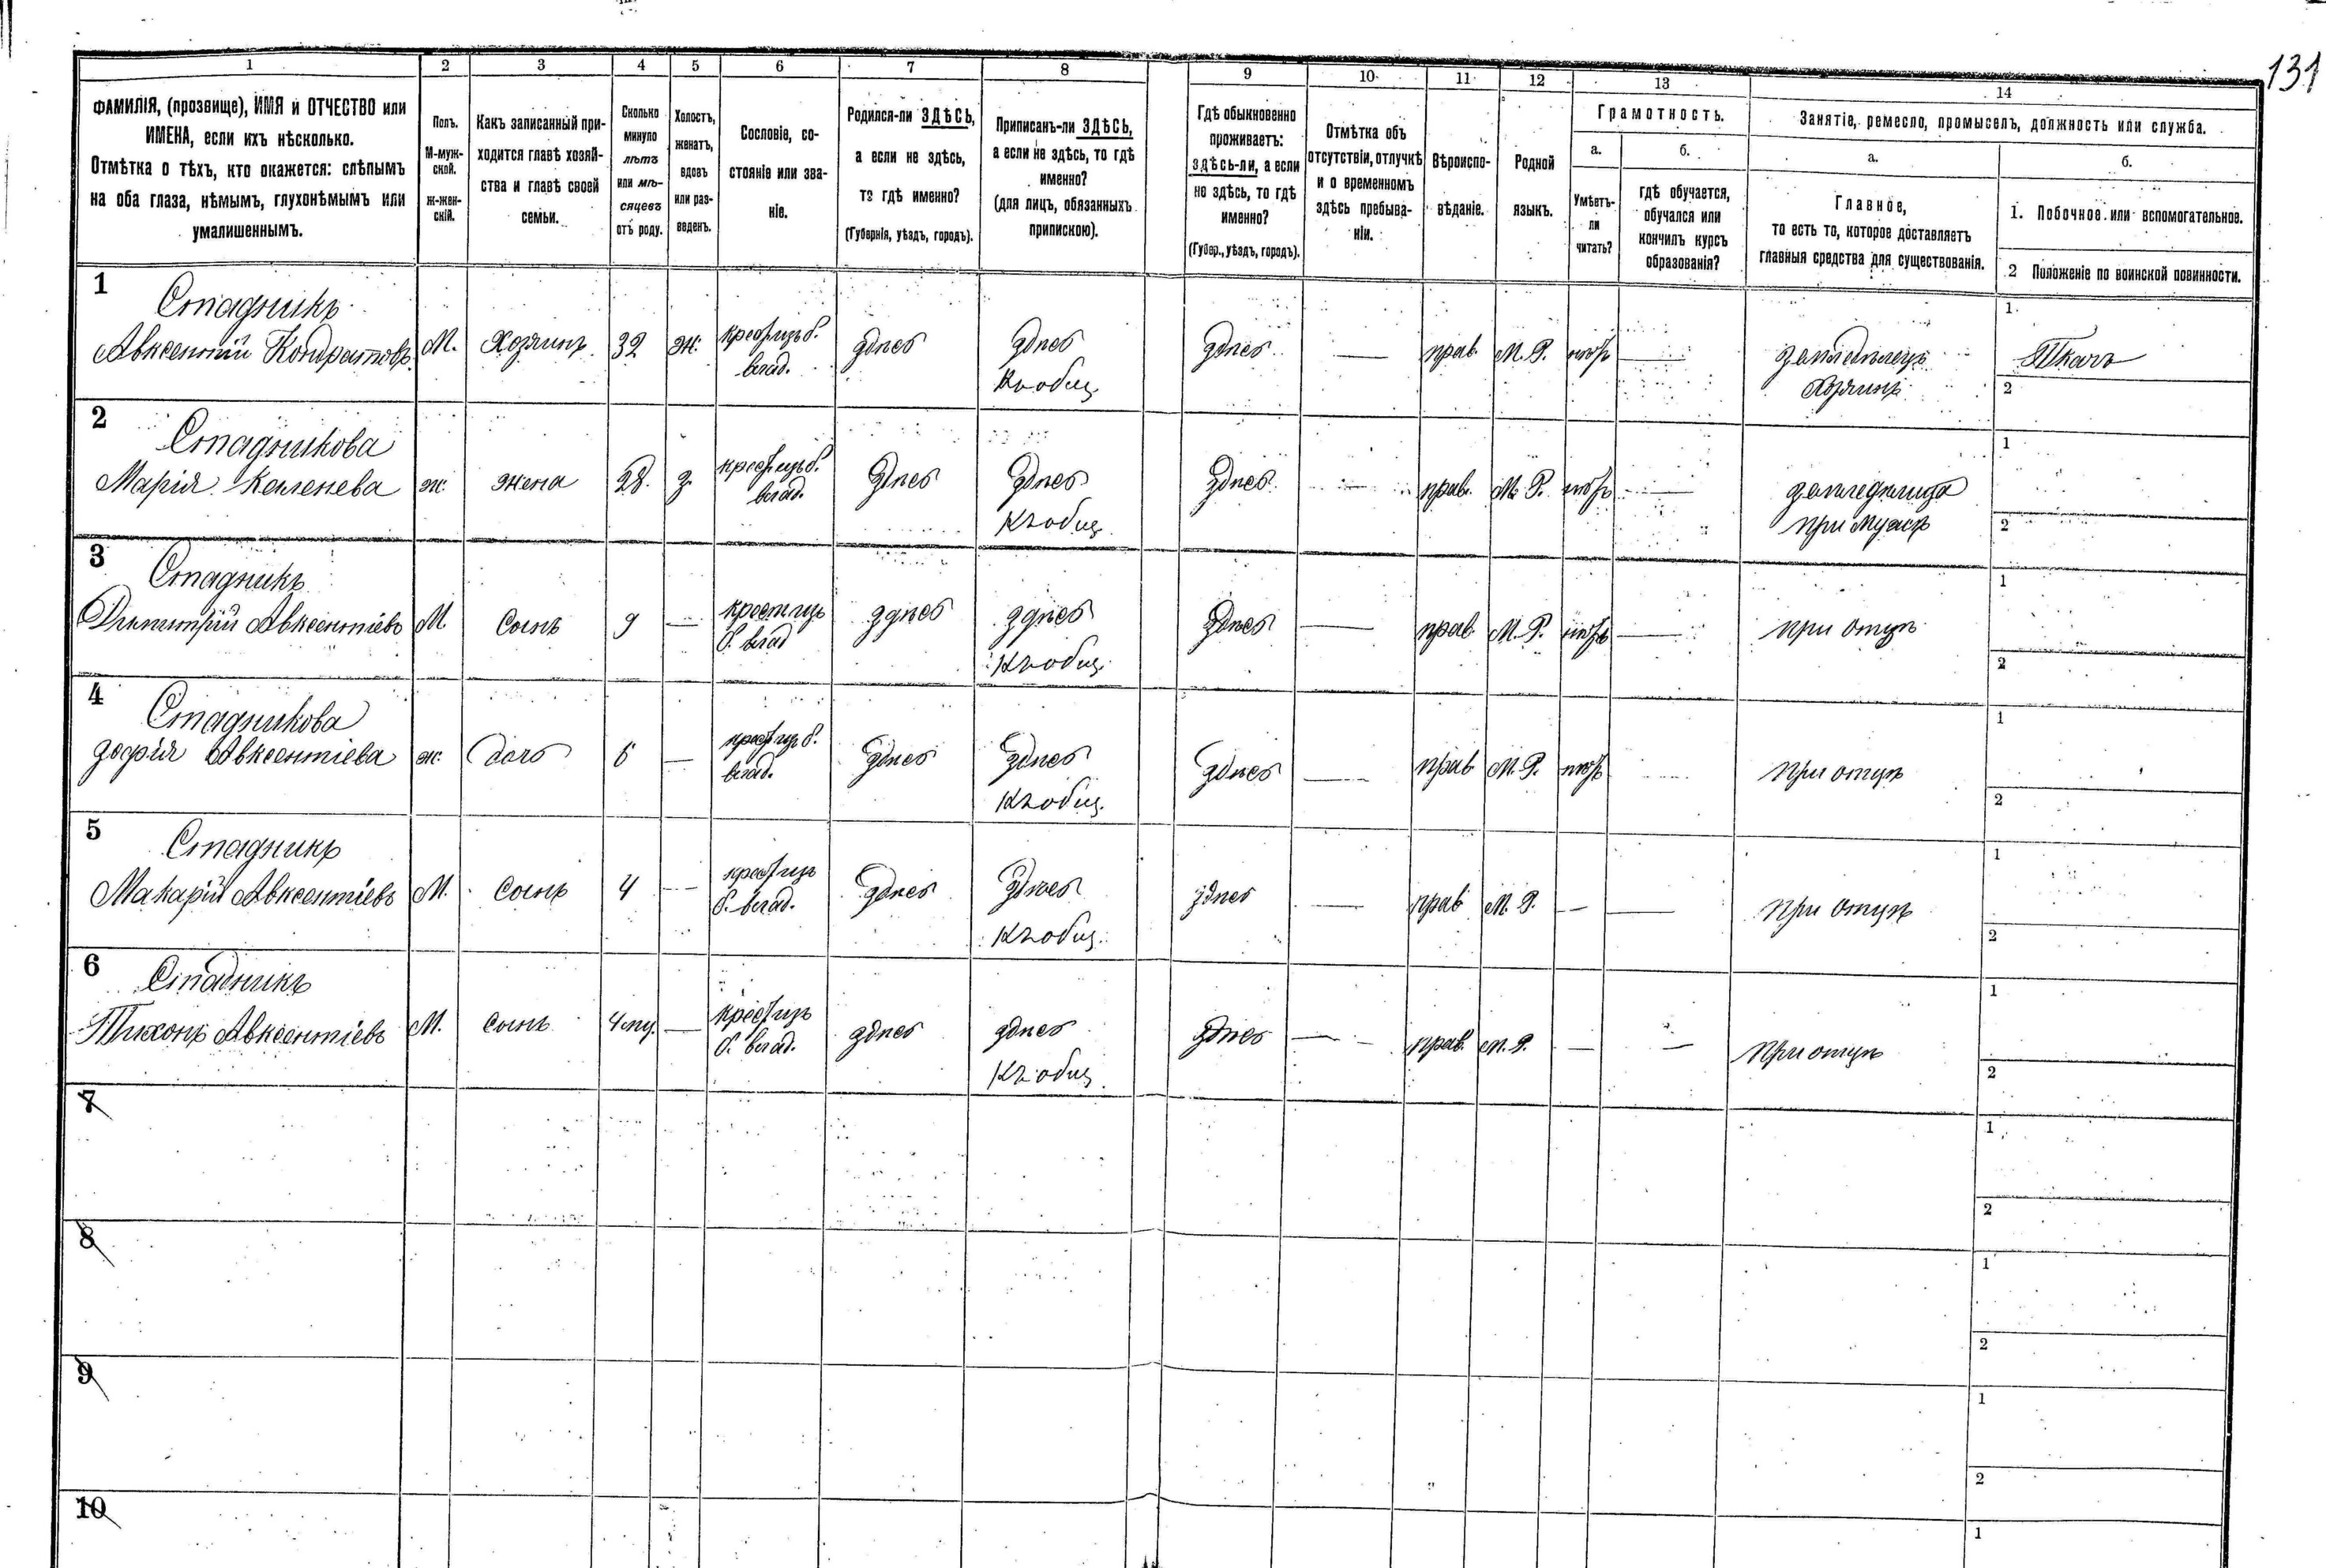 131
1 2 3 4 5 6 7 8 9 10 11 12 13 14
ФАМИЛІЯ, (прозвище), ИМЯ и ОТЧЕСТВО или
ИМЕНА, если ихъ нѣсколько.
Отмѣтка о тѣхъ, кто окажется: слѣпымъ
на оба глаза, нѣмымъ, глухонѣмымъ или
умалишеннымъ.
Полъ.
М-муж-
ской.
Ж-жен-
скій.
Какъ записанный при-
ходится главѣ хозяй-
ства и главѣ своей
семьи.
Сколько
минуло
лѣтъ
или мѣ-
сяцевъ
отъ роду.
Холостъ,
женатъ,
вдовъ
или раз-
веденъ.
Сословіе, со-
стояніе или зва-
ніе.
Родился-ли ЗДѢСЬ,
а если не здѣсь,
то гдѣ именно?
(Губернія, уѣздъ, городъ).
Приписанъ-ли ЗДѢСЬ,
а если не здѣсь, то гдѣ
именно?
(для лицъ, обязанныхъ
припискою).
Гдѣ обыкновенно
проживаетъ:
здѣсь-ли, а если
не здѣсь, то гдѣ
именно?
(Губер., уѣздъ, городъ).
Отмѣтка объ
отсутствіи, отлучкѣ
и о временномъ
здѣсь пребыва-
ніи.
Вѣроиспо-
вѣданіе.
Родной
языкъ.
Грамотность.
а.
Умѣетъ-
ли
читать?
б.
гдѣ обучается,
обучался или
кончилъ курсъ
образованія?
Занятіе, ремесло, промыселъ, должность или служба.
а.
Главное,
то есть то, которое доставляетъ
главныя средства для существованія.
б.
1. Побочное или вспомогательное.
2 Положеніе по воинской повинности.
1
Стадникъ
Авксентій Кондратовъ М. Хозяинъ 32 ж. крестьянъ б. здѣсь здѣсь здѣсь — прав. М. Р. нѣтъ — земледѣлецъ 1. Ткачъ
влад. Къ общ. хозяинъ 2
2
Стадникова
Марія Каленева ж. жена 28. з. б. здѣсь здѣсь здѣсь — прав. М. Р. нѣтъ — 1
влад. Къ общ. при мужѣ 2
3
Стадникъ
Димитрій Авксентіевъ М. Сынъ 9 — здѣсь здѣсь здѣсь — прав. М. Р. нѣтъ — при отцѣ 1
б. влад Къ общ. 2
4
Стадникова
Зофія Авксентіева ж. дочь 6 — б. здѣсь здѣсь здѣсь — прав М. Р. нѣтъ при отцѣ 1
влад. Къ общ. 2
5
Стадникъ
Макарій Авксентіевъ М. Сынъ 4 — здѣсь здѣсь здѣсь — прав М. Р. — — при отцѣ 1
б. влад. Къ общ. 2
6
Стадникъ
Тихонъ Авксентіевъ М. Сынъ — здѣсь здѣсь здѣсь — прав. М. Р. — — при отцѣ 1
б. влад. Къ общ. 2
7 1
2
8 1
2
9 1
2
10 1